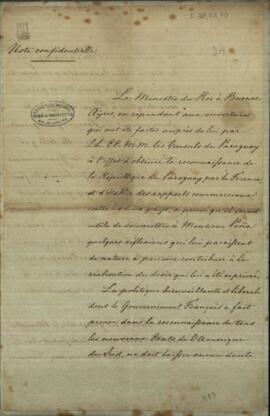 Note confidentielle
Le Ministre du Roi à Buenos-
Ayres, en répondant aux ouvertures
qui ont été faites auprès de lui par
LL. EE. M.M. les Consuls du Paraguay
à l'effet d'obtenir la reconnaissance de
la République du Paraguay par la France
et d'établir des rapports commerciaux
entre les deux pays, a pensé qu'il serait
utile de soumettre à Monsieur Peña
quelques réflexions qui lui paraissent
de nature à pouvoir contribuer à la
réalisation du désir qui lui a été exprimé.
La politique bienveillante et libérale
dont le Gouvernement Français a fait
preuve dans la reconnaissance de tous
les nouveaux États de l'Amérique
du Sud, ne doit laisser aucun doute